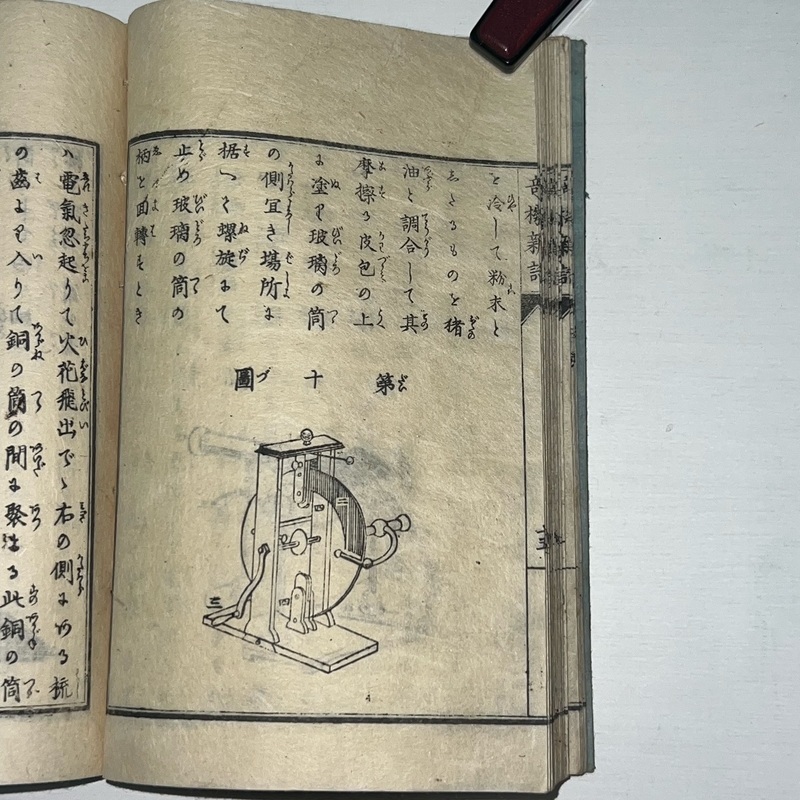 奇機新話
を冷して粉末と
志たるものを猪
油と調合して其
摩擦る皮包の上
に塗り玻璃の筒
の側宜き場所に
据へて螺旋にて
止め玻璃の筒の
柄を回轉すとき
第十圖
二
三
四
ハ電氣忽起りて火花飛出でゝ右の側にある梳
の齒より入りて銅の筒の間に聚はる此銅の筒